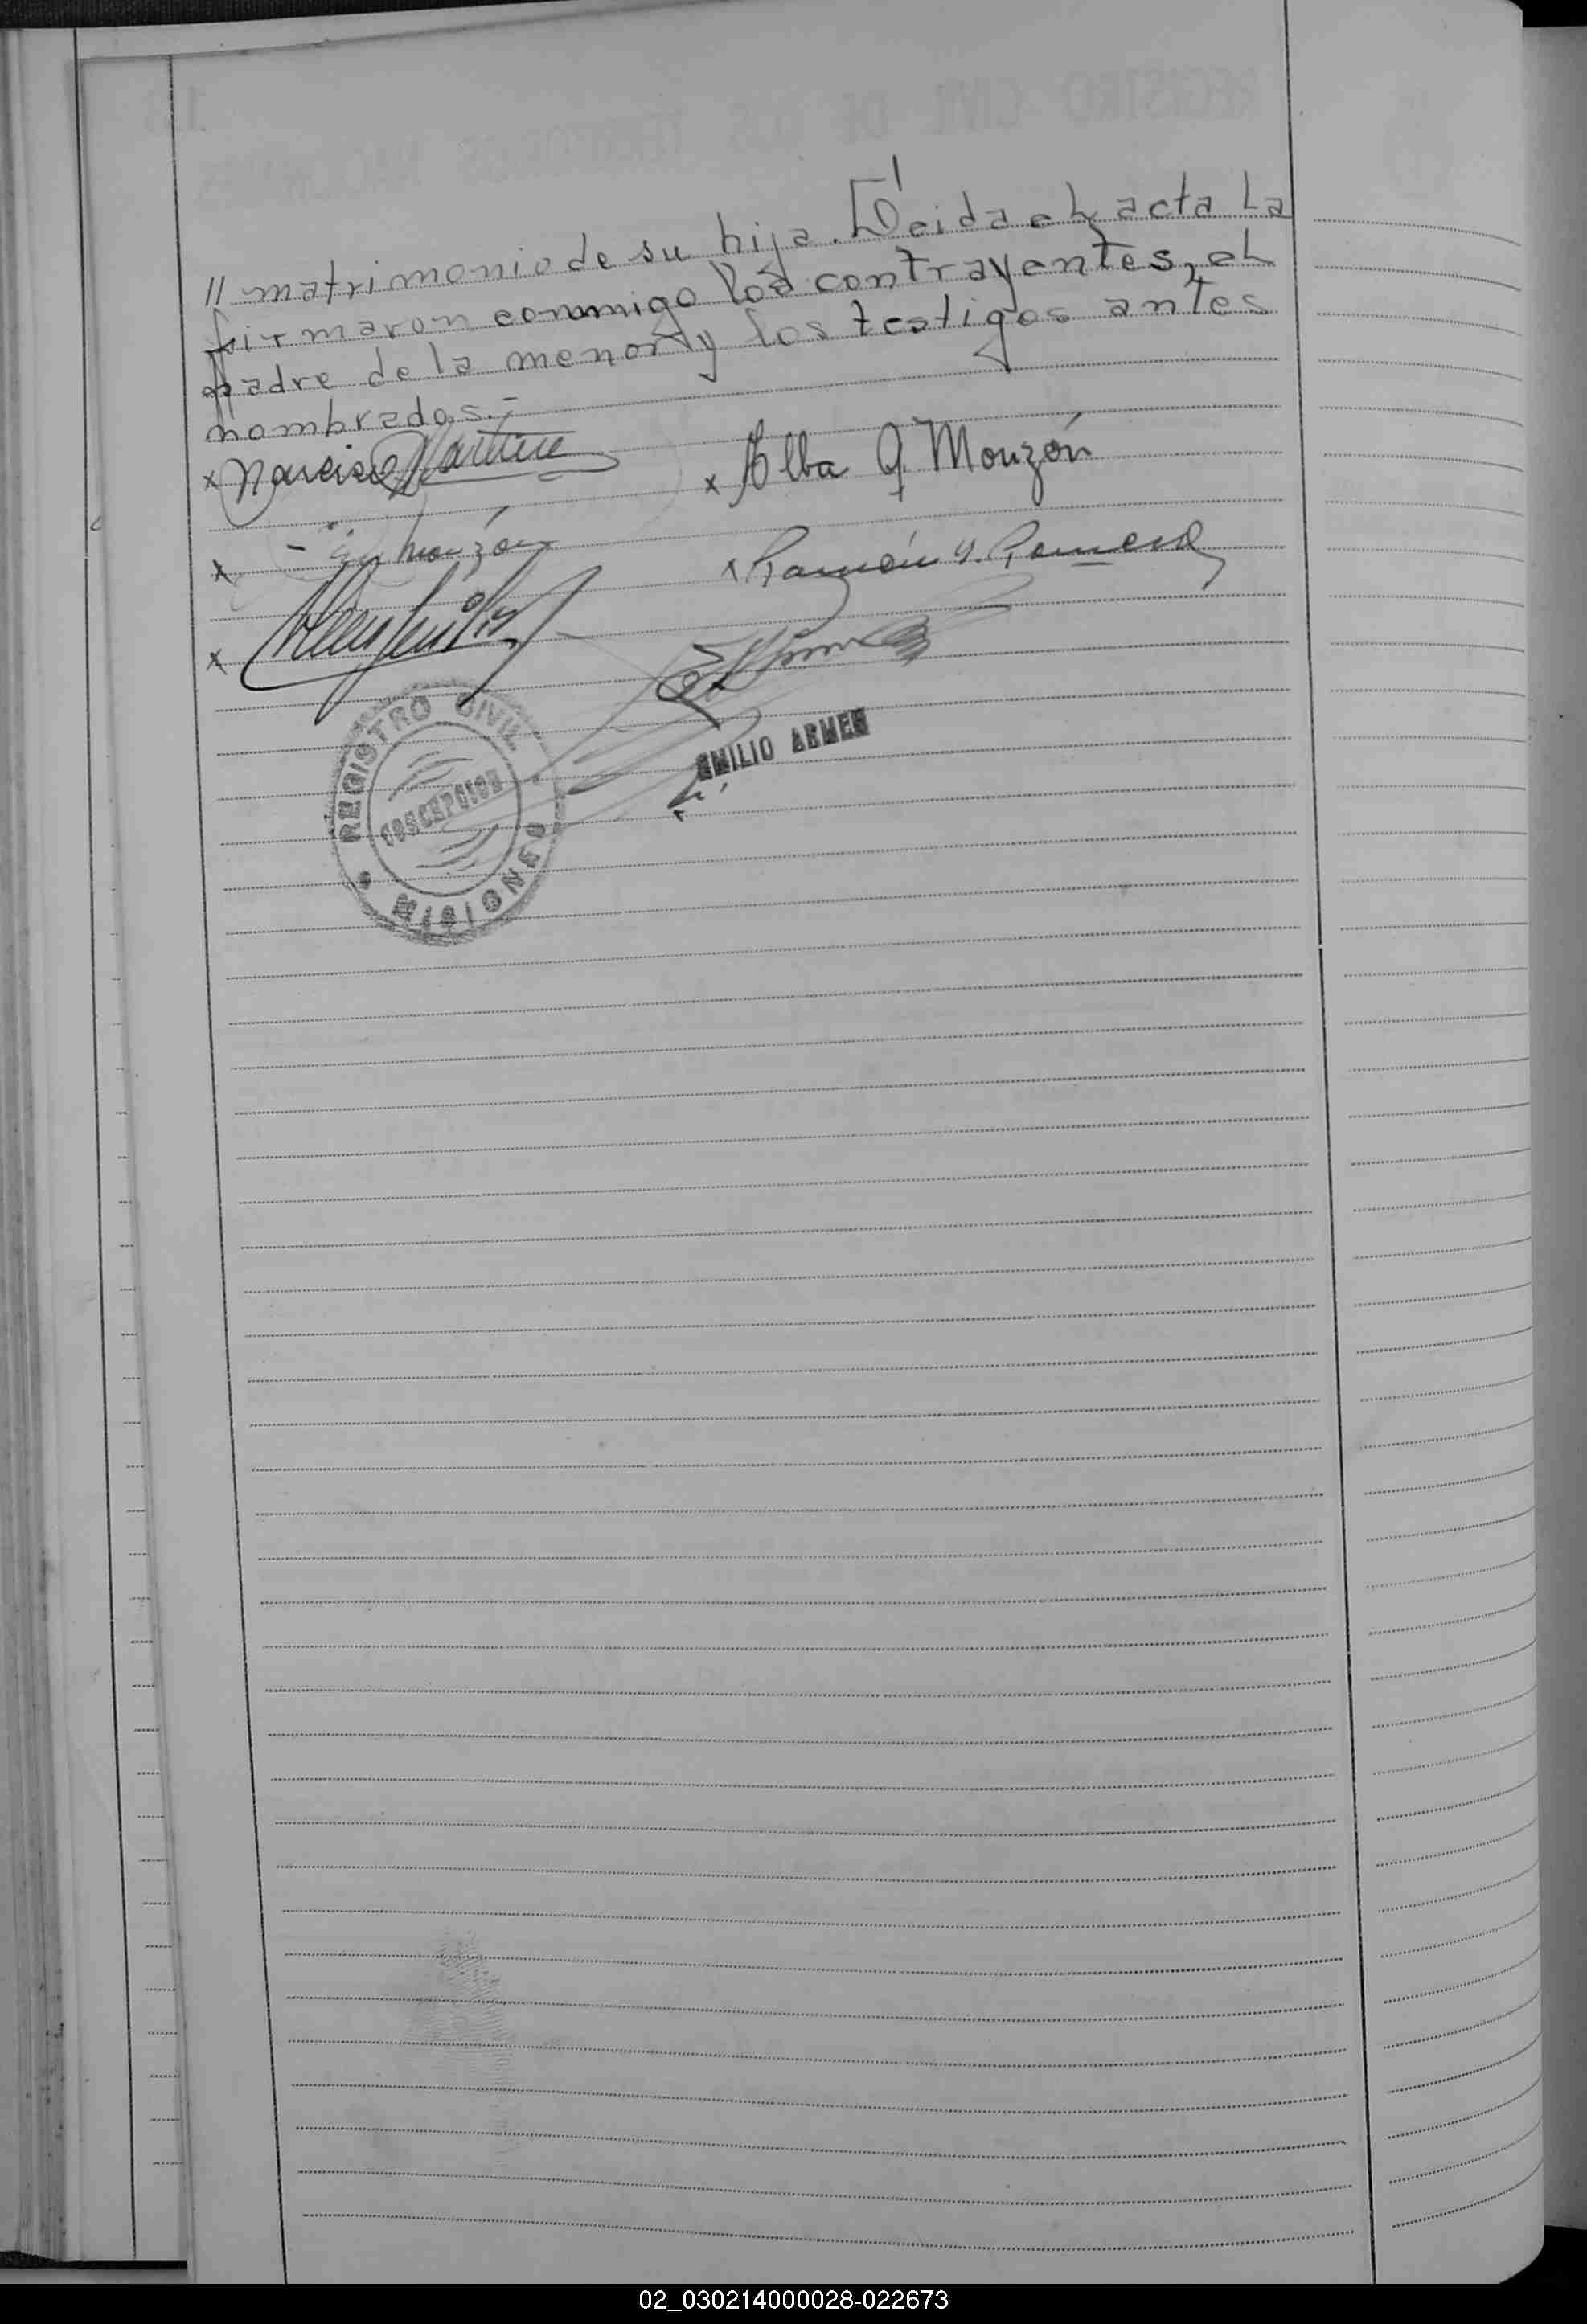 // matrimonio de su hija. Leida el acta la
firmaron conmigo los contrayentes, el
padre de la menor y los testigos antes
nombrados.-
x Narciso Martinez x Alba G. Monzón
x Monzón x Ramón Y. Romero
x
EMILIO ARMEN
REGISTRO CIVIL
CONCEPCION
MISIONES
02_030214000028-022673